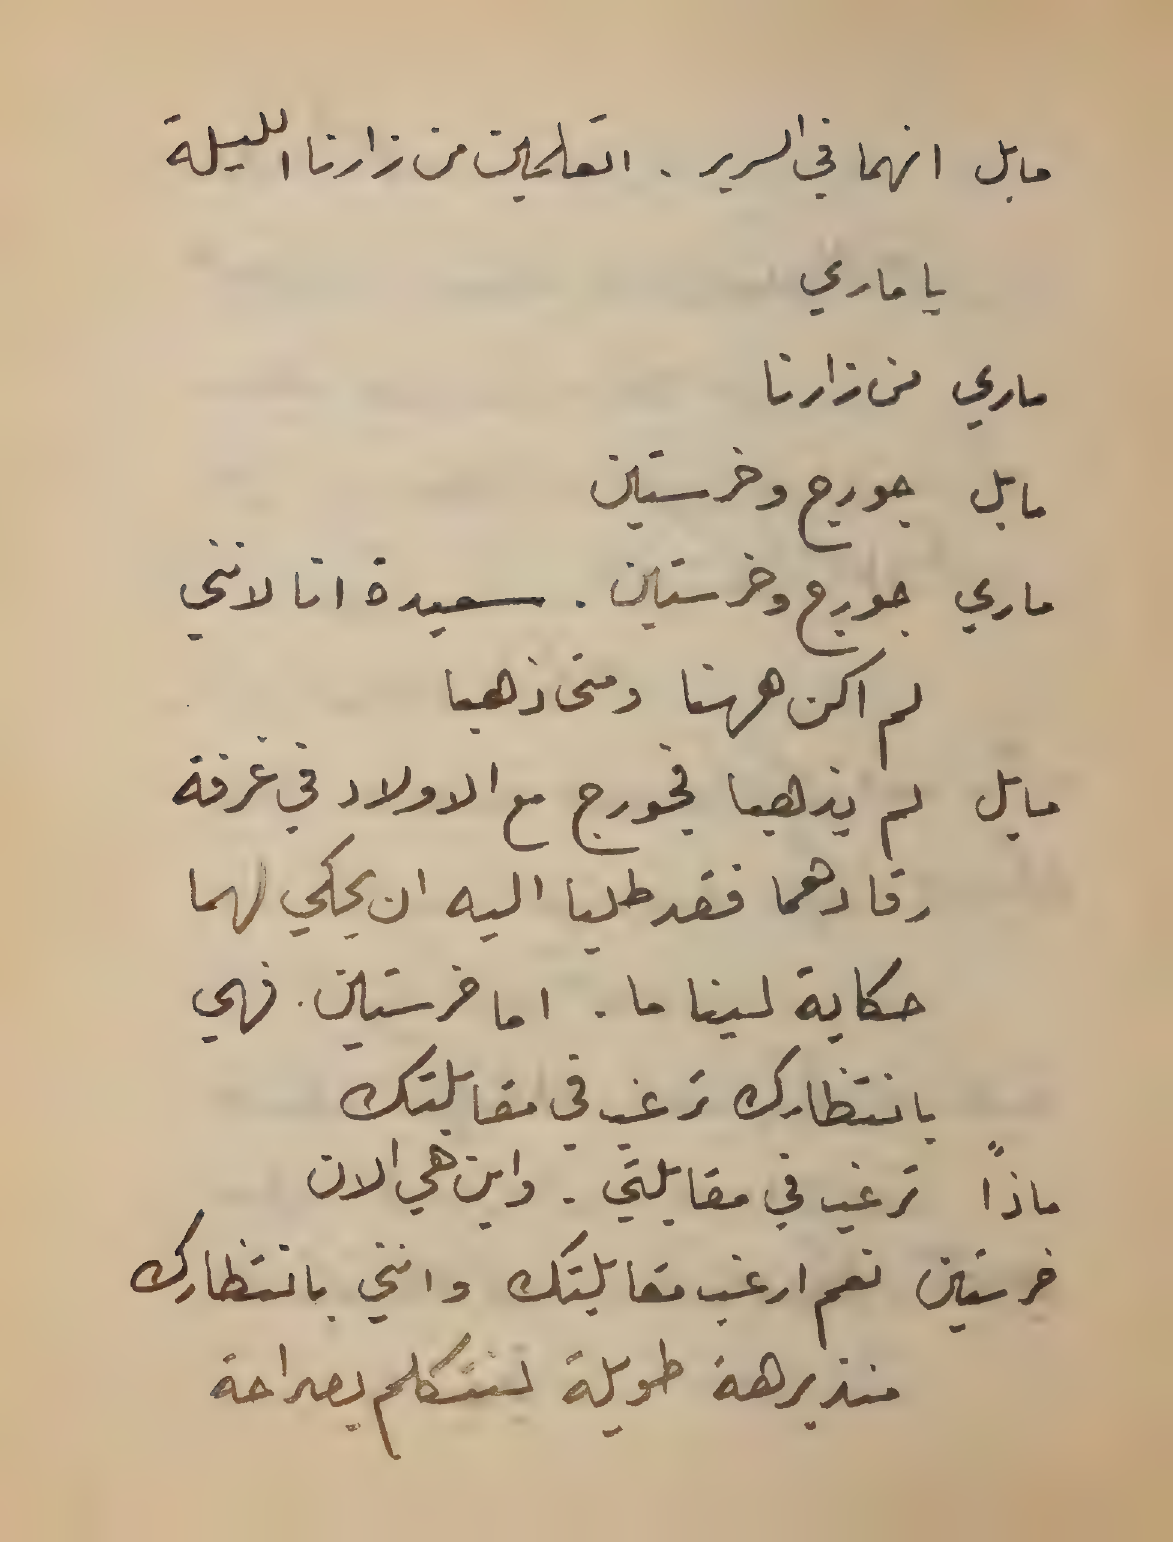 مابل انهما في السرير . اتعلمين من زارنا الليلة
يا ماري
ماري من زارنا
مابل جورج وخرستين
ماري جورج وخرستين . سعيدة انا لانني
لم اكن ههنا ومتى ذهبا
مابل لم يذهبا فجورج مع الاولاد في غرفة
رقادهما فقد طلبا اليه ان يحكي لهما
حكاية لينا ما . اما خرستين . فهي
بانتظارك ترغب في مقابلتك
ماذاً ترغب في مقابلتي . واين هي الان
خرستين نعم ارغب مقابلتك وانني بانتظارك
منذ برهة طويلة لنتكلم بصراحة